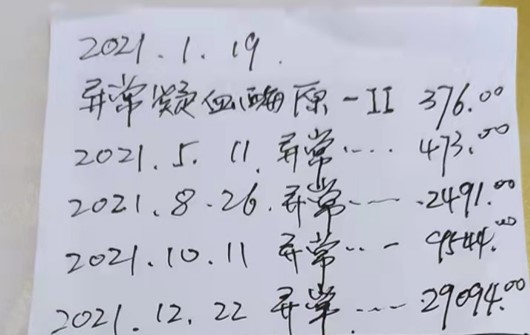 2021.1.19.
异常凝血酶原-II 376.00
2021.5.11.异常.... 473.00
2021.8.26.异常.--- .2491.00
2021.10.11 异常..- 9544.00
2021.12.22 异常.... 29094.00